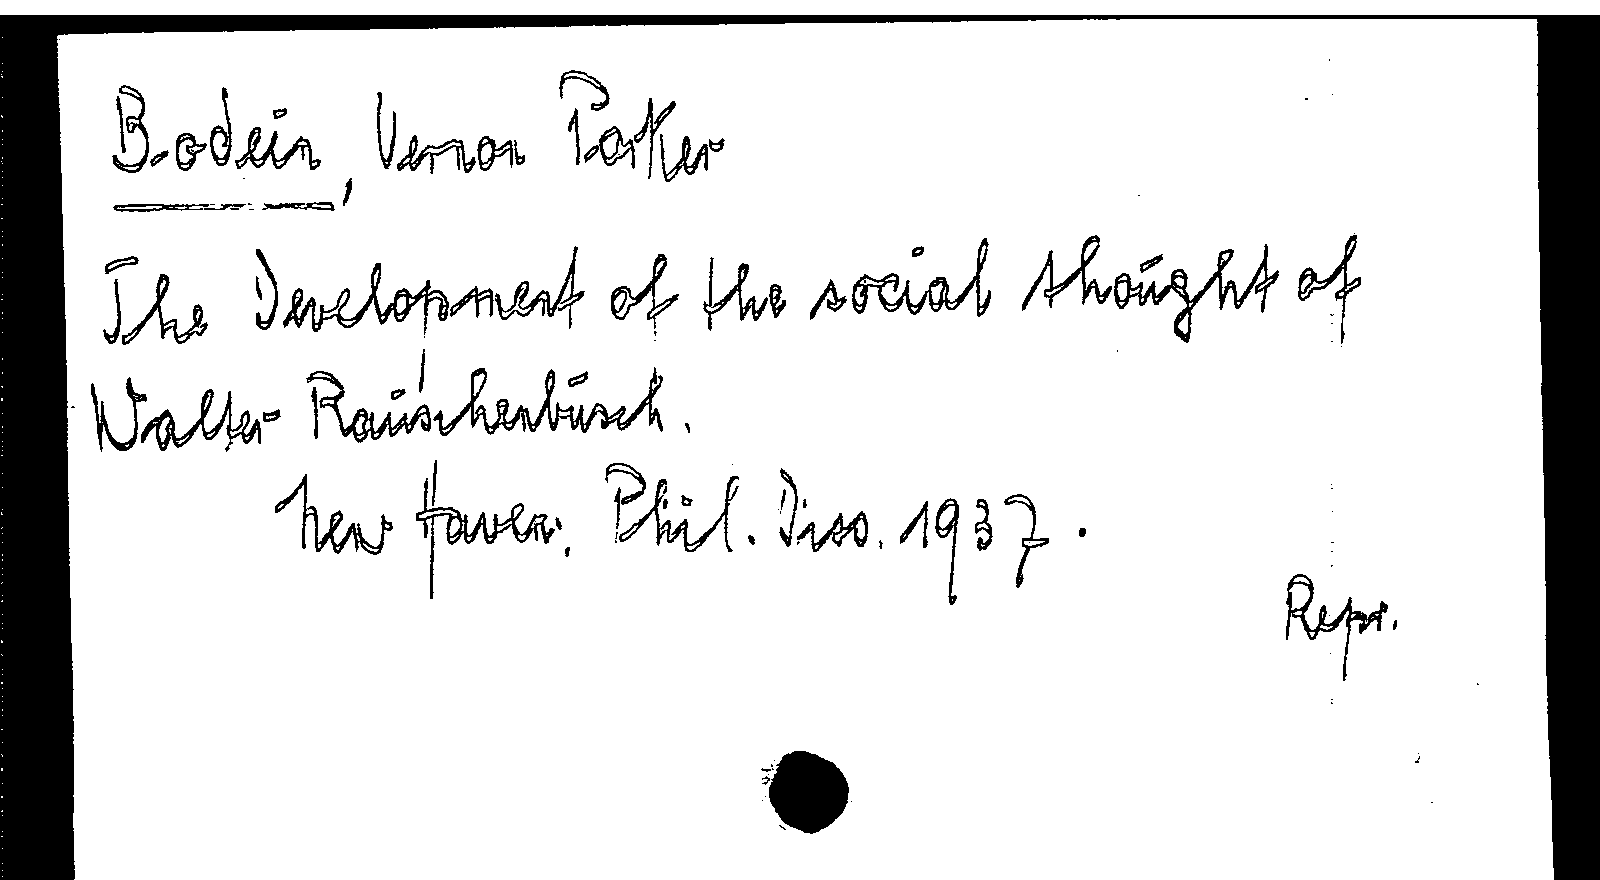 Bodein, Vernon Parker
The Development of the social thought of
Walter Rauschenbusch.
New Haven, Phil. Diss. 1937.
Repr.